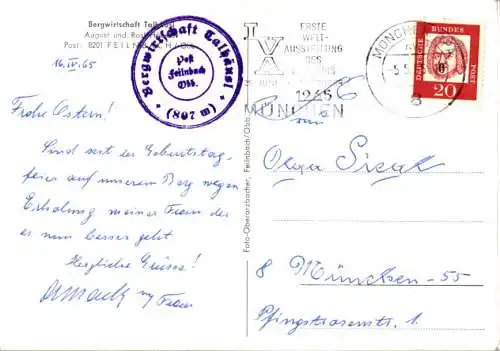 Bergwirtschaft Talhäusl
August und Ros
Post: 8201 FEILNBACH/Obb.
16.IV.65
Bergwirtschaft Talhäusl
Post
Feilnbach
Obb.
(897 m)
Frohe Ostern!
Sind seit der Geburtstag-
feier auf unserem Berg wegen
Erholung meiner Frau der
es nun besser geht
Herzliche Grüsse!
Frau
ERSTE
WELT-
AUSSTELLUNG
DES
1965
MÜNCHEN
IVA
MÜNCHEN
8
DEUTSCHE
BUNDES
POST
20
Foto-Oberarzbacher, Feilnbach/Obb.
Olga Sigal
8 München-55
Pfingstrosenstr. 1